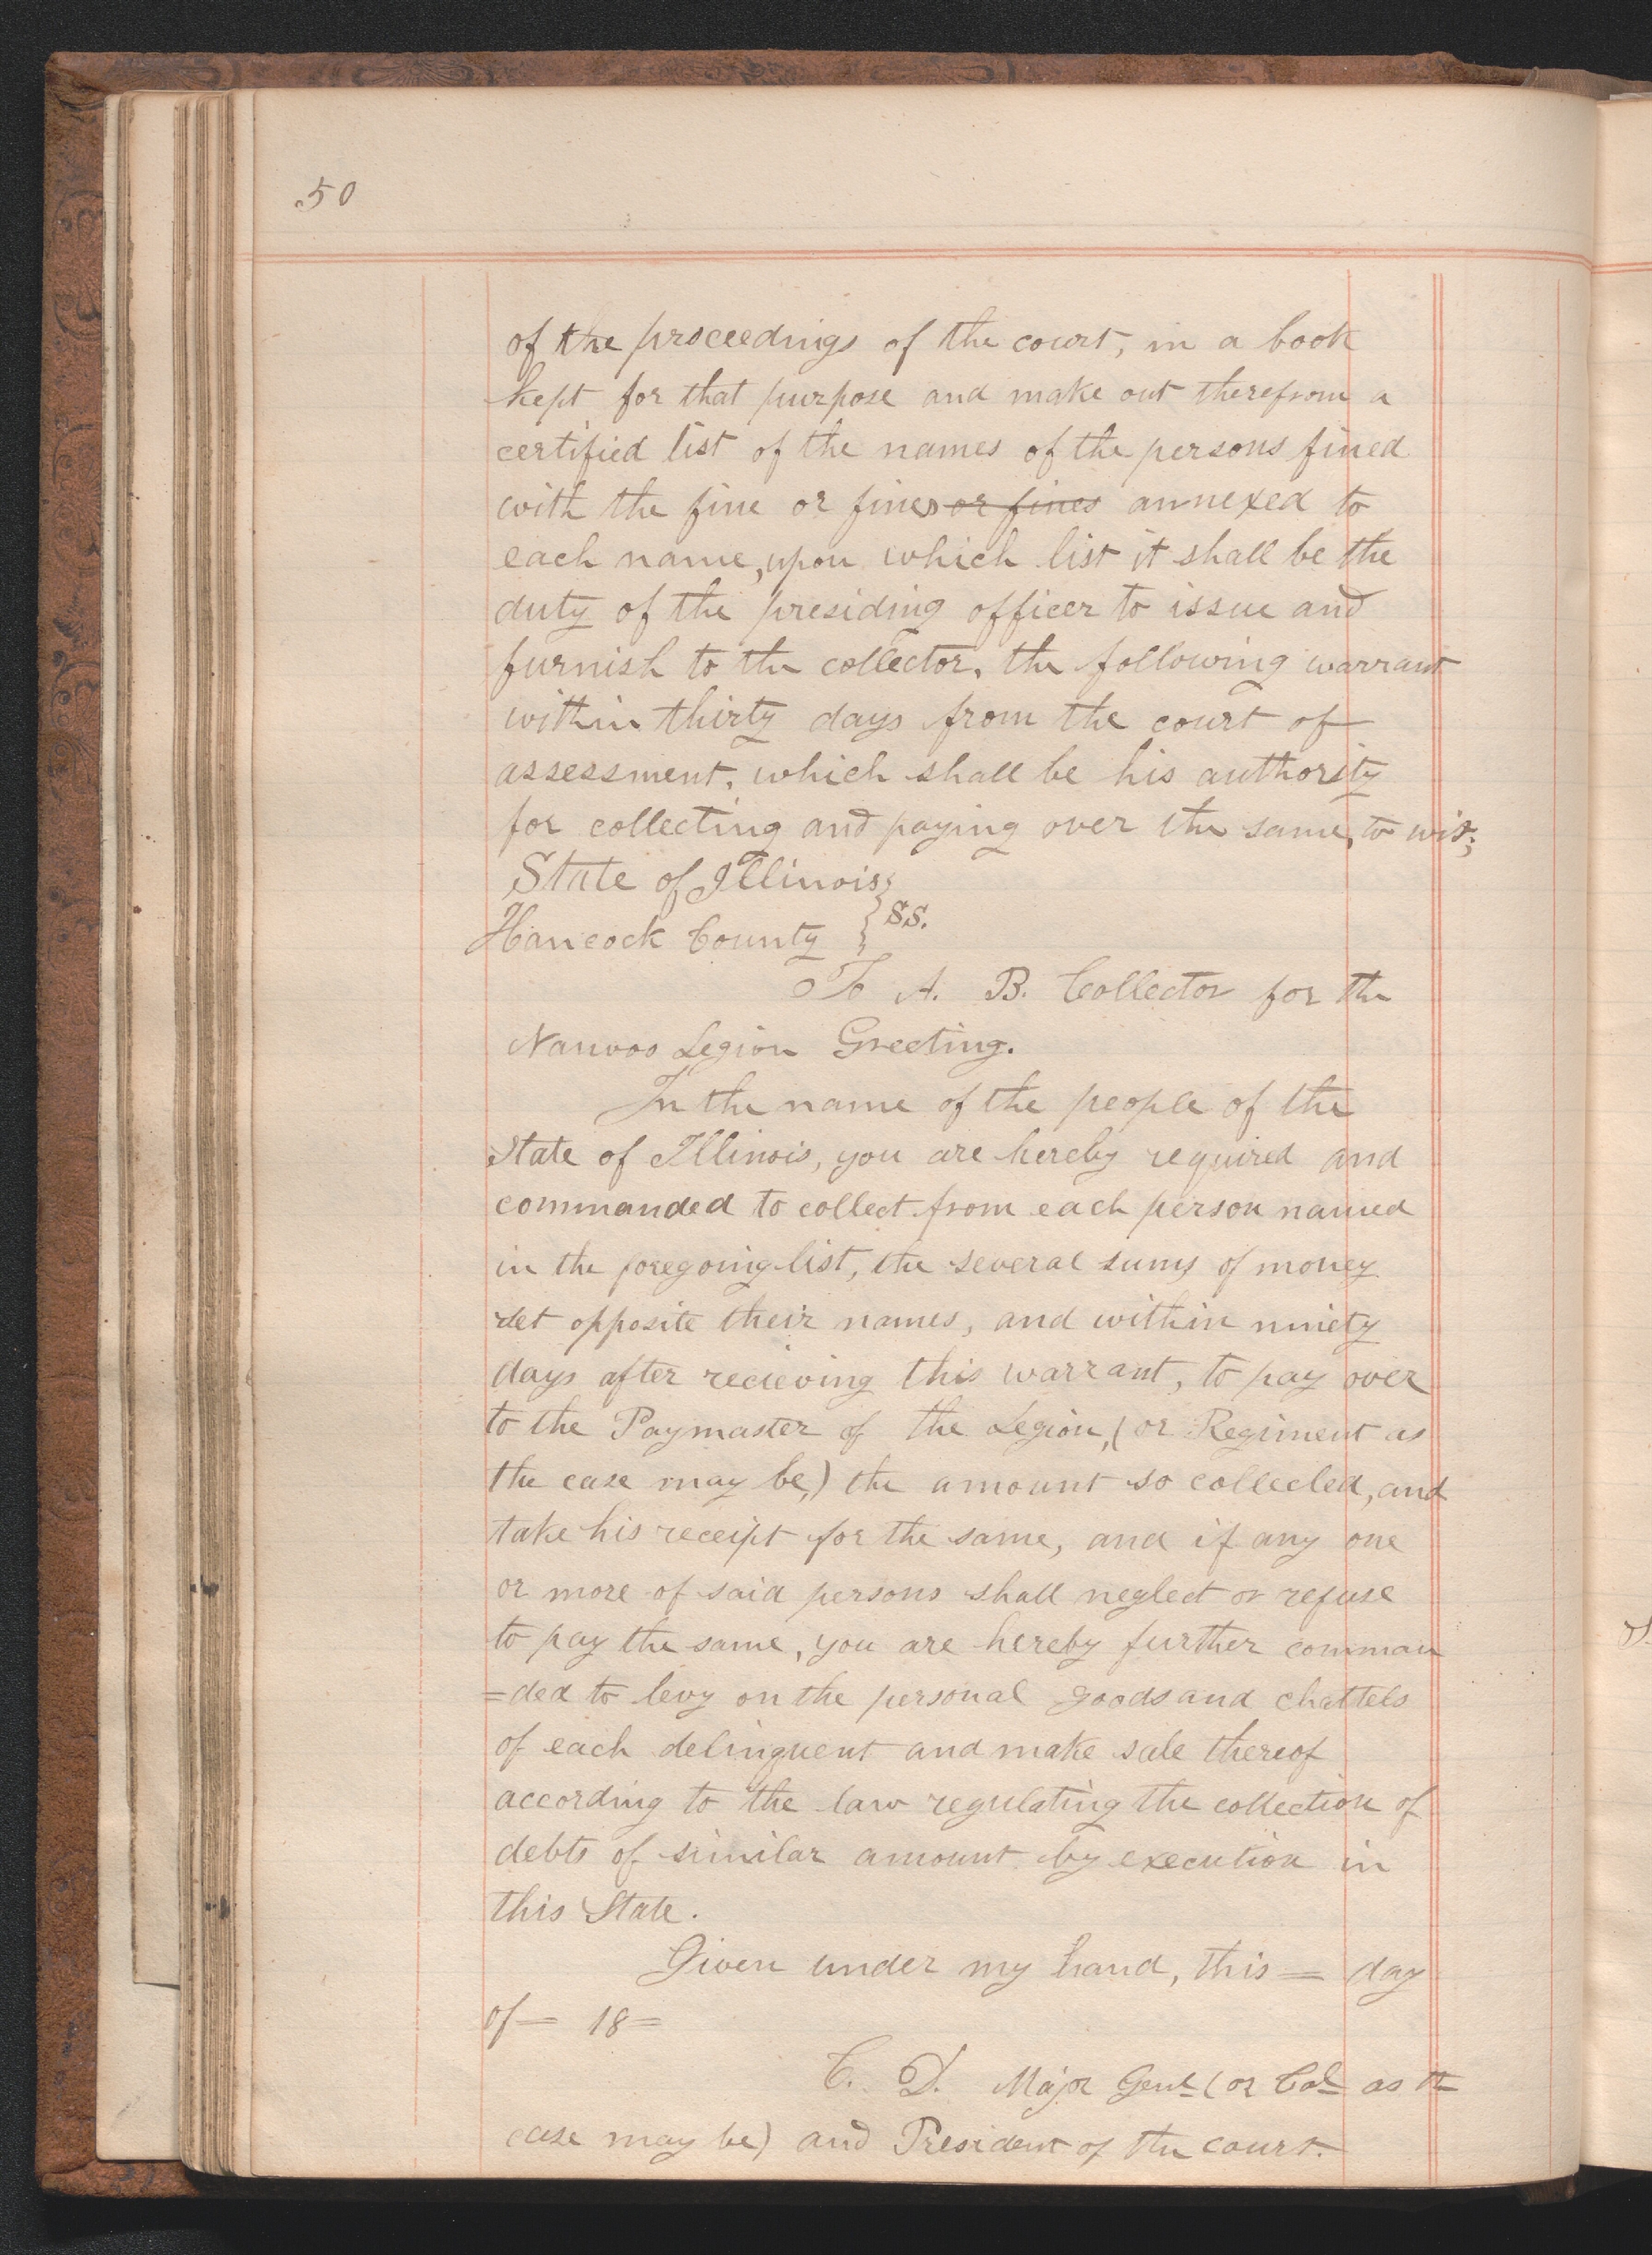 50
of the proceedings of the court, in a book
kept for that purpose and make out therefrom a
certified list of the names of the persons fined
with the fine or fines or fines annexed to
each name, upon which list it shall be the
duty of the presiding officer to issue and
furnish to the collector, the following warrant
within thirty days from the court of
assessment, which shall be his authority
for collecting and paying over the same, to wit;
State of Illinois }
Hancock County } SS.
To A. B. Collector for the
Nauvoo Legion Greeting.
In the name of the people of the
State of Illinois, you are hereby required and
commanded to collect from each person named
in the foregoing list, the several sums of money
set opposite their names, and within ninety
days after recieving this warrant, to pay over
to the Paymaster of the Legion, (or Regiment as
the case may be,) the amount so collected, and
take his receipt for the same, and if any one
or more of said persons shall neglect or refuse
to pay the same, you are hereby further comman
=ded to levy on the personal goods and chattels
of each delinquent and make sale thereof
according to the law regulating the collection of
debts of similar amount by execution in
this State.
Given under my hand, this = day
of — 18=
C. D. Major Genl (or Col as th
case may be) and President of the court.